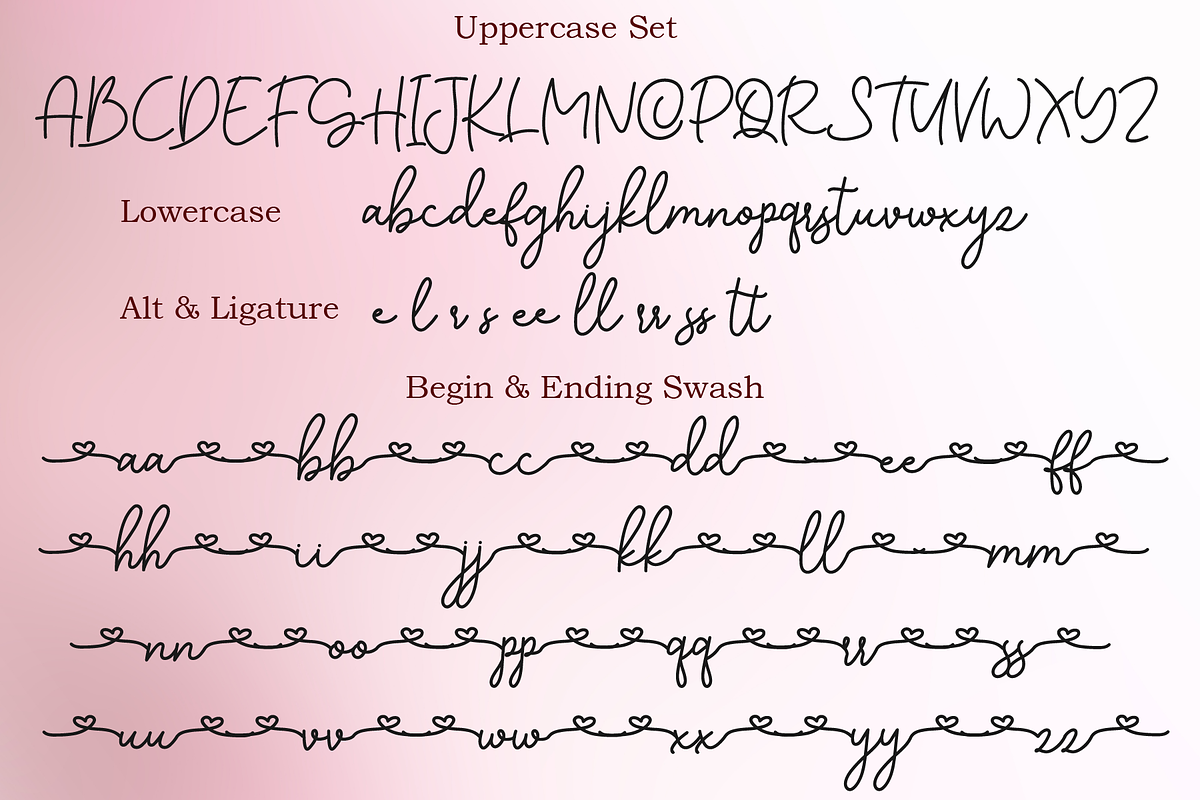 Uppercase Set
ABCDEFGHIJKLMNOPQRSTUVWXYZ
Lowercase abcdefghijklmnopqrstuvwxyz
Alt & Ligature e l r s ee ll rr ss tt
Begin & Ending Swash
aa bb cc dd ee ff
hh ii jj kk ll mm
nn oo pp qq rr ss
uu vv ww xx yy zz